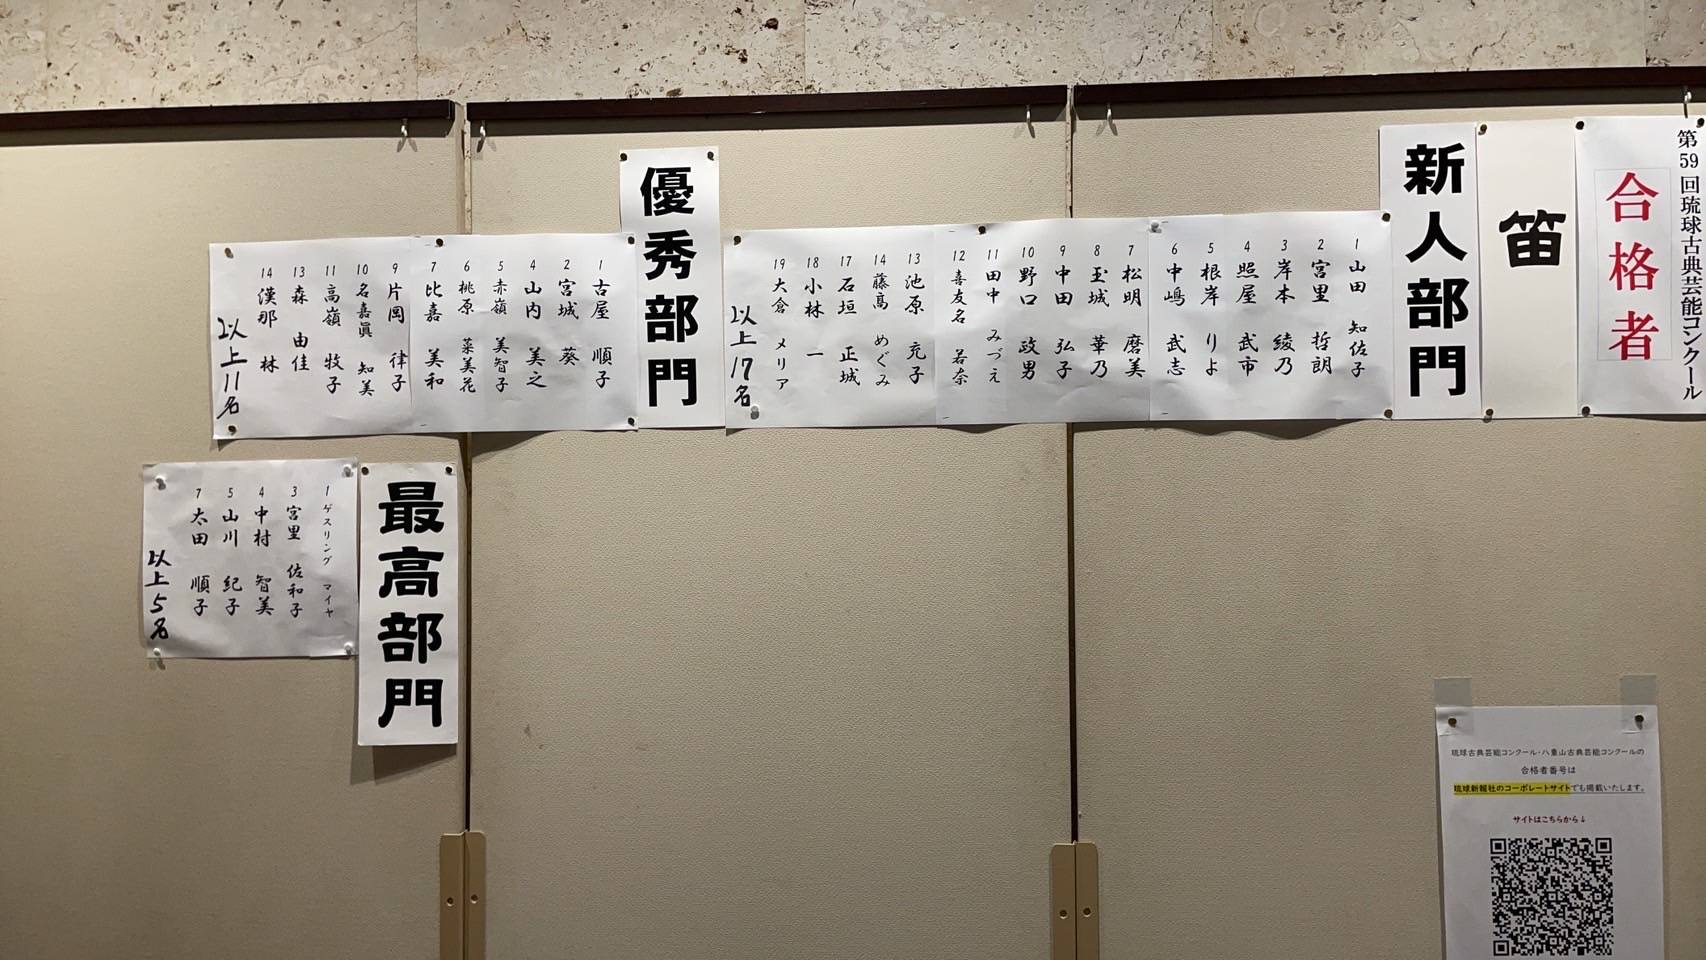 第59回琉球古典芸能コンクール
合格者
笛
新人部門
1 山田 知佐子
2 宮里 哲朗
3 岸本 綾乃
4 照屋 武市
5 根岸 りよ
6 中嶋 武志
7 松明 磨美
8 玉城 華乃
9 中田 弘子
10 野口 政男
11 田中 みづえ
12 喜友名 若奈
13 池原 充子
14 藤高 めぐみ
17 石垣 正城
18 小林 一
19 大倉 メリア
以上17名
優秀部門
1 古屋 順子
2 宮城 葵
4 山内 美之
5 赤嶺 美智子
6 桃原 菜美花
7 比嘉 美和
9 片岡 律子
10 名嘉眞 知美
11 高嶺 牧子
13 森 由佳
14 漢那 林
以上11名
最高部門
1 ゲスリング マイヤ
3 宮里 佐和子
4 中村 智美
5 山川 紀子
7 太田 順子
以上5名
琉球古典芸能コンクール・八重山古典芸能コンクールの
合格者番号は
琉球新報社のコーポレートサイトでも掲載いたします。
サイトはこちらから↓